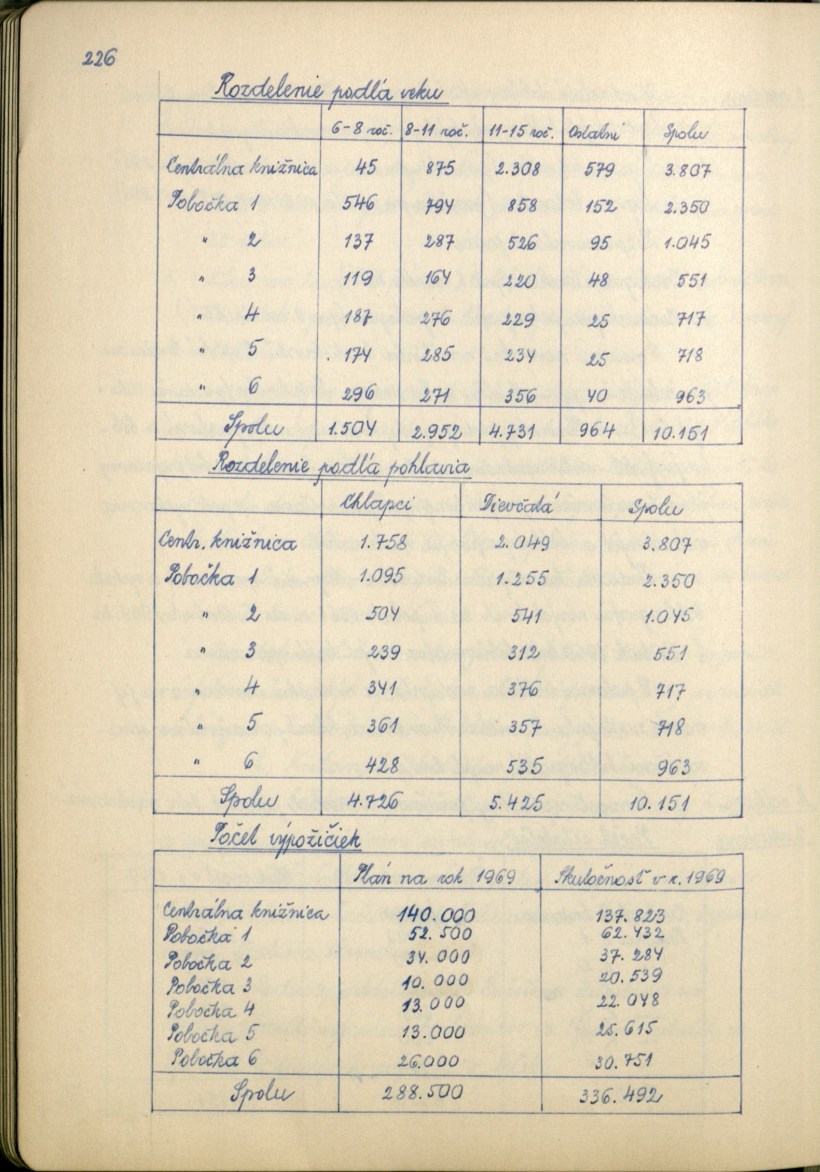 226
Rozdelenie podľa veku
6-8 roč. 8-11 roč. 11-15 roč. Ostatní Spolu
Centrálna knižnica 45 875 2.308 579 3.807
Pobočka 1 546 794 858 152 2.350
" 2 137 287 526 95 1.045
" 3 119 164 220 48 551
" 4 187 276 229 25 717
" 5 174 285 234 25 718
" 6 296 271 356 40 963
Spolu 1.504 2.952 4.731 964 10.151
Rozdelenie podľa pohlavia
Chlapci Dievčatá Spolu
Centr. knižnica 1.758 2.049 3.807
Pobočka 1 1.095 1.255 2.350
" 2 504 541 1.045
" 3 239 312 551
" 4 341 376 717
" 5 361 357 718
" 6 428 535 963
Spolu 4.726 5.425 10.151
Počet výpožičiek
Plán na rok 1969 Skutočnosť v r. 1969
Centrálna knižnica 140.000 137.823
Pobočka 1 52.500 62.432
Pobočka 2 34.000 37.284
Pobočka 3 10.000 20.539
Pobočka 4 13.000 22.048
Pobočka 5 13.000 25.615
Pobočka 6 26.000 30.751
Spolu 288.500 336.492